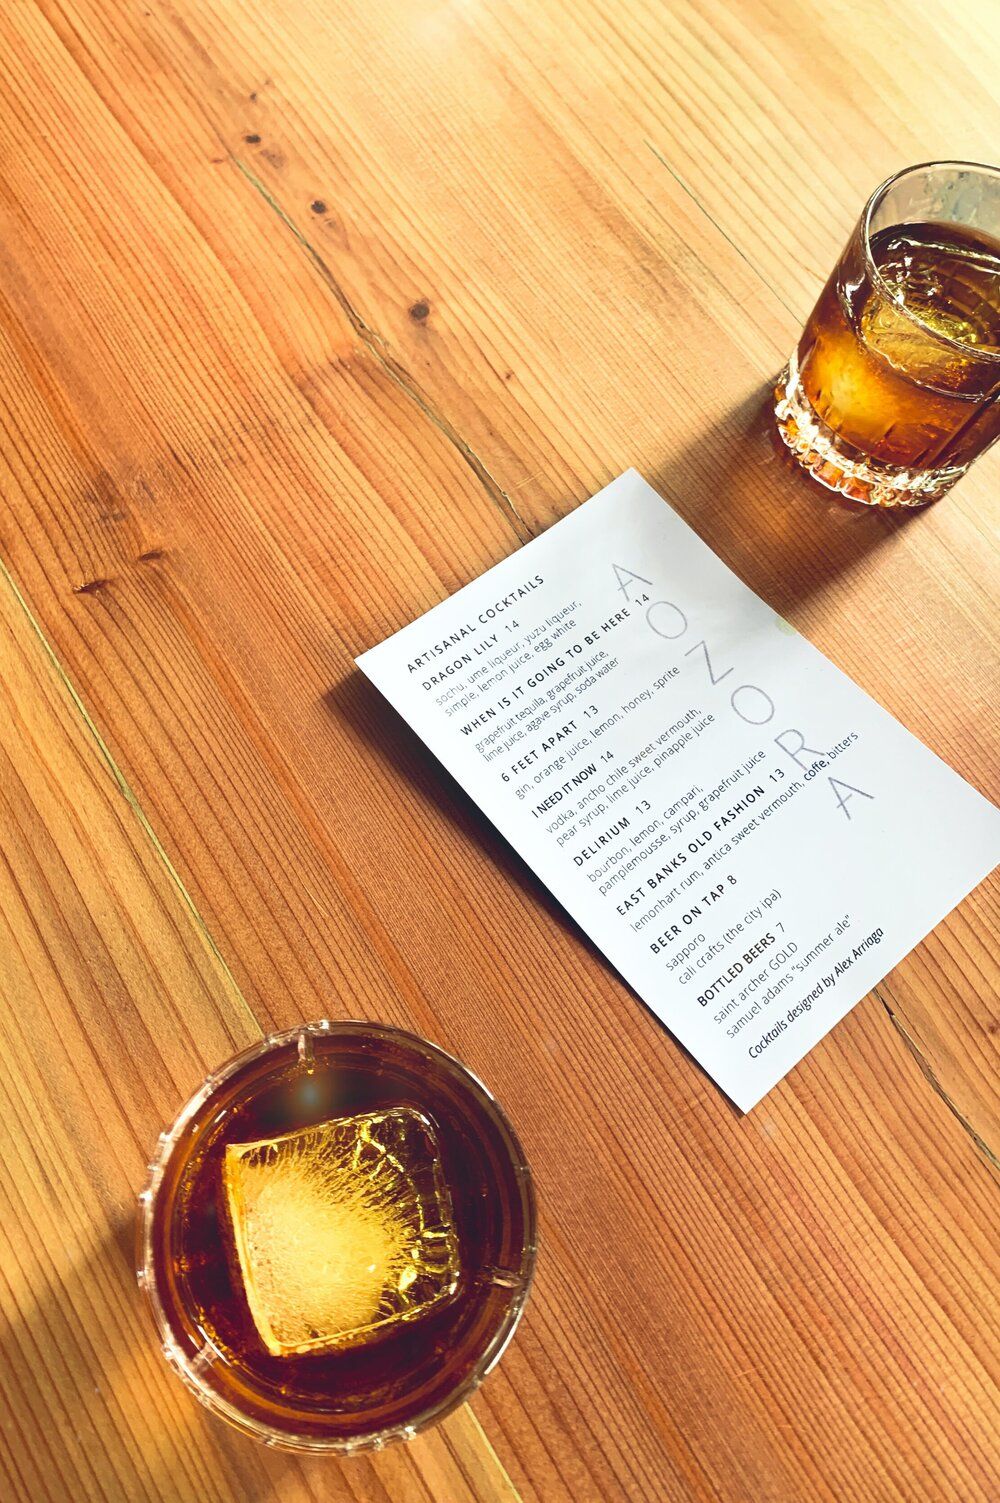 ARTISANAL COCKTAILS
DRAGON LILY 14
sochu, ume liqueur, yuzu liqueur,
simple, lemon juice, egg white
WHEN IS IT GOING TO BE HERE 14
grapefruit tequila, grapefruit juice,
lime juice, agave syrup, soda water
6 FEET APART 13
gin, orange juice, lemon, honey, sprite
I NEED IT NOW 14
vodka, ancho chile sweet vermouth,
pear syrup, lime juice, pinapple juice
DELIRIUM 13
bourbon, lemon, campari,
pamplemousse, syrup, grapefruit juice
EAST BANKS OLD FASHION 13
lemonhart rum, antica sweet vermouth, coffe, bitters
BEER ON TAP 8
sapporo
cali crafts (the city ipa)
BOTTLED BEERS 7
saint archer GOLD
samuel adams "summer ale"
Cocktails designed by Alex Arriaga
AOZORA